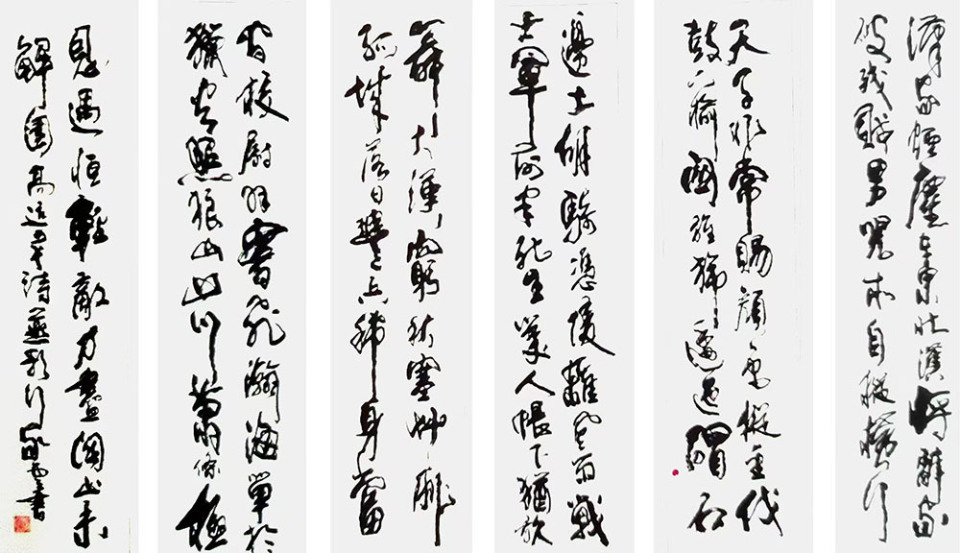 漢家煙塵在東北漢將辭家
破殘賊男兒本自縱橫行
天子非常賜顏色摐金伐
鼓下榆關旌旆逶迤碣石
邊土胡騎憑陵雜風雨戰
士軍前半死生美人帳下猶歌
舞大漠窮秋塞草腓
孤城落日鬥兵稀身當
間校尉羽書飛瀚海單于
獵火照狼山山川蕭條極
恩遇恒輕敵力盡關山未
解圍高適詩燕歌行書